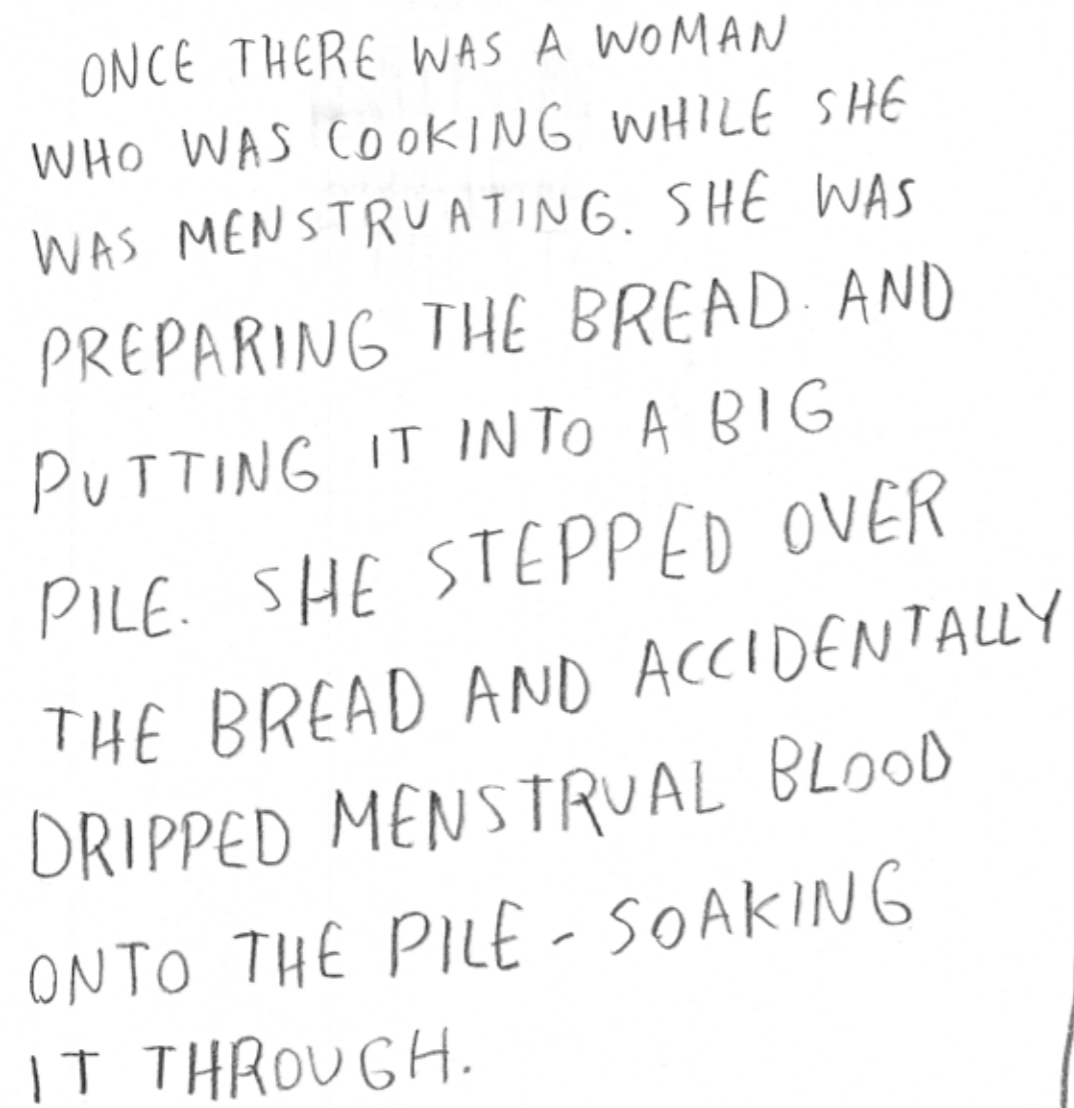 ONCE THERE WAS A WOMAN
WHO WAS COOKING WHILE SHE
WAS MENSTRUATING. SHE WAS
PREPARING THE BREAD. AND
PUTTING IT INTO A BIG
PILE. SHE STEPPED OVER
THE BREAD AND ACCIDENTALLY
DRIPPED MENSTRUAL BLOOD
ONTO THE PILE - SOAKING
IT THROUGH.